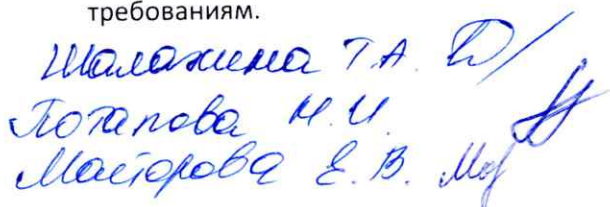 требованиям.
Шалахина Т.А.
Потапова Н.И.
Майорова Е.В.